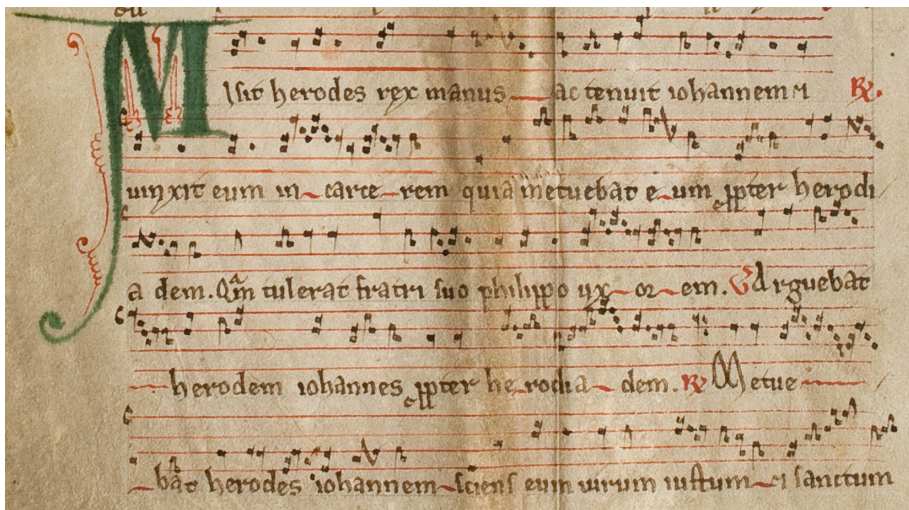 Misit herodes rex manus ac tenuit iohannem ⁊ R⁊.
uinxit eum in carce rem quia metuebat e um ꝓpter herodi
a dem. Qm̄ tulerat fratri suo philippo ux or em. V Arguebat
herodem iohannes ꝓpter he rodia dem. R⁊ Metue
bat herodes iohannem sciens eum uirum iustum ⁊ sanctum